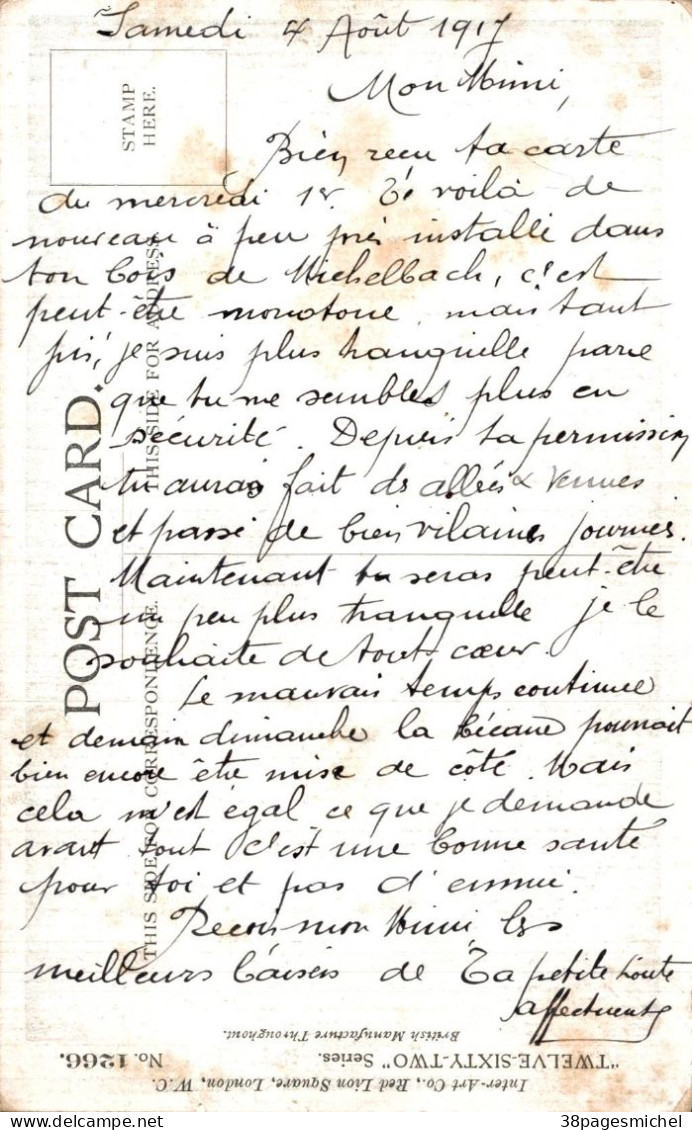 Samedi 4 Août 1917
Mon Mimi,
Bien reçu ta carte
du mercredi 1er. Te voilà de
nouveau à peu près installé dans
ton bois de Michelbach, c'est
peut-être monotone, mais tant
pis, je suis plus tranquille parce
que tu me sembles plus en
sécurité. Depuis ta permission
tu aurais fait ds allées & venues
et passé de bien vilaines journées.
Maintenant tu seras peut-être
un peu plus tranquille je le
souhaite de tout cœur.
Le mauvais temps continue
et demain dimanche la bécane pourrait
bien encore être mise de côté. Mais
cela m'est égal ce que je demande
avant tout c'est une bonne santé
pour toi et pas d'ennui.
Reçois mon Mimi, les
meilleurs baisers de Ta petite toute
affectueuse
STAMP
HERE.
POST CARD.
THIS SIDE FOR CORRESPONDENCE.
THIS SIDE FOR ADDRESS.
Inter-Art Co., Red Lion Square, London, W.C.
"TWELVE-SIXTY-TWO" Series.
No. 1266.
British Manufacture Throughout.
38pagesmichel